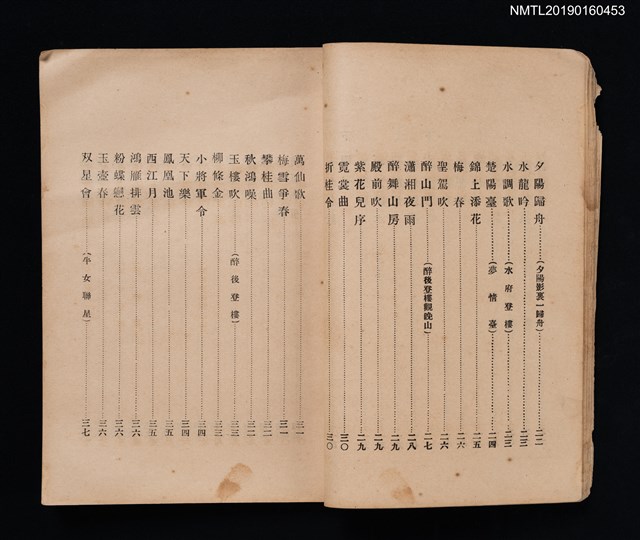 NMTL20190160453
夕陽歸舟（夕陽影裏一歸舟）二二
水龍吟 二三
水調歌（水府登樓）二三
楚陽臺（夢情臺）二四
錦上添花 二五
梅春 二六
聖駕吹 二六
醉山門（醉後登樓觀晚山）二七
瀟湘夜雨 二八
醉舞山房 二九
殿前吹 二九
紫花兒序 二九
霓裳曲 三〇
折桂令 三〇
萬仙歌 三一
梅雪爭春 三一
攀桂曲 三二
秋鴻噪 三二
玉樓吹（醉後登樓）三三
柳條金 三三
小將軍令 三四
天下樂 三四
鳳凰池 三五
西江月 三五
鴻雁排雲 三六
粉蝶戀花 三六
玉壺春 三六
双星會（牛女聯星）三七